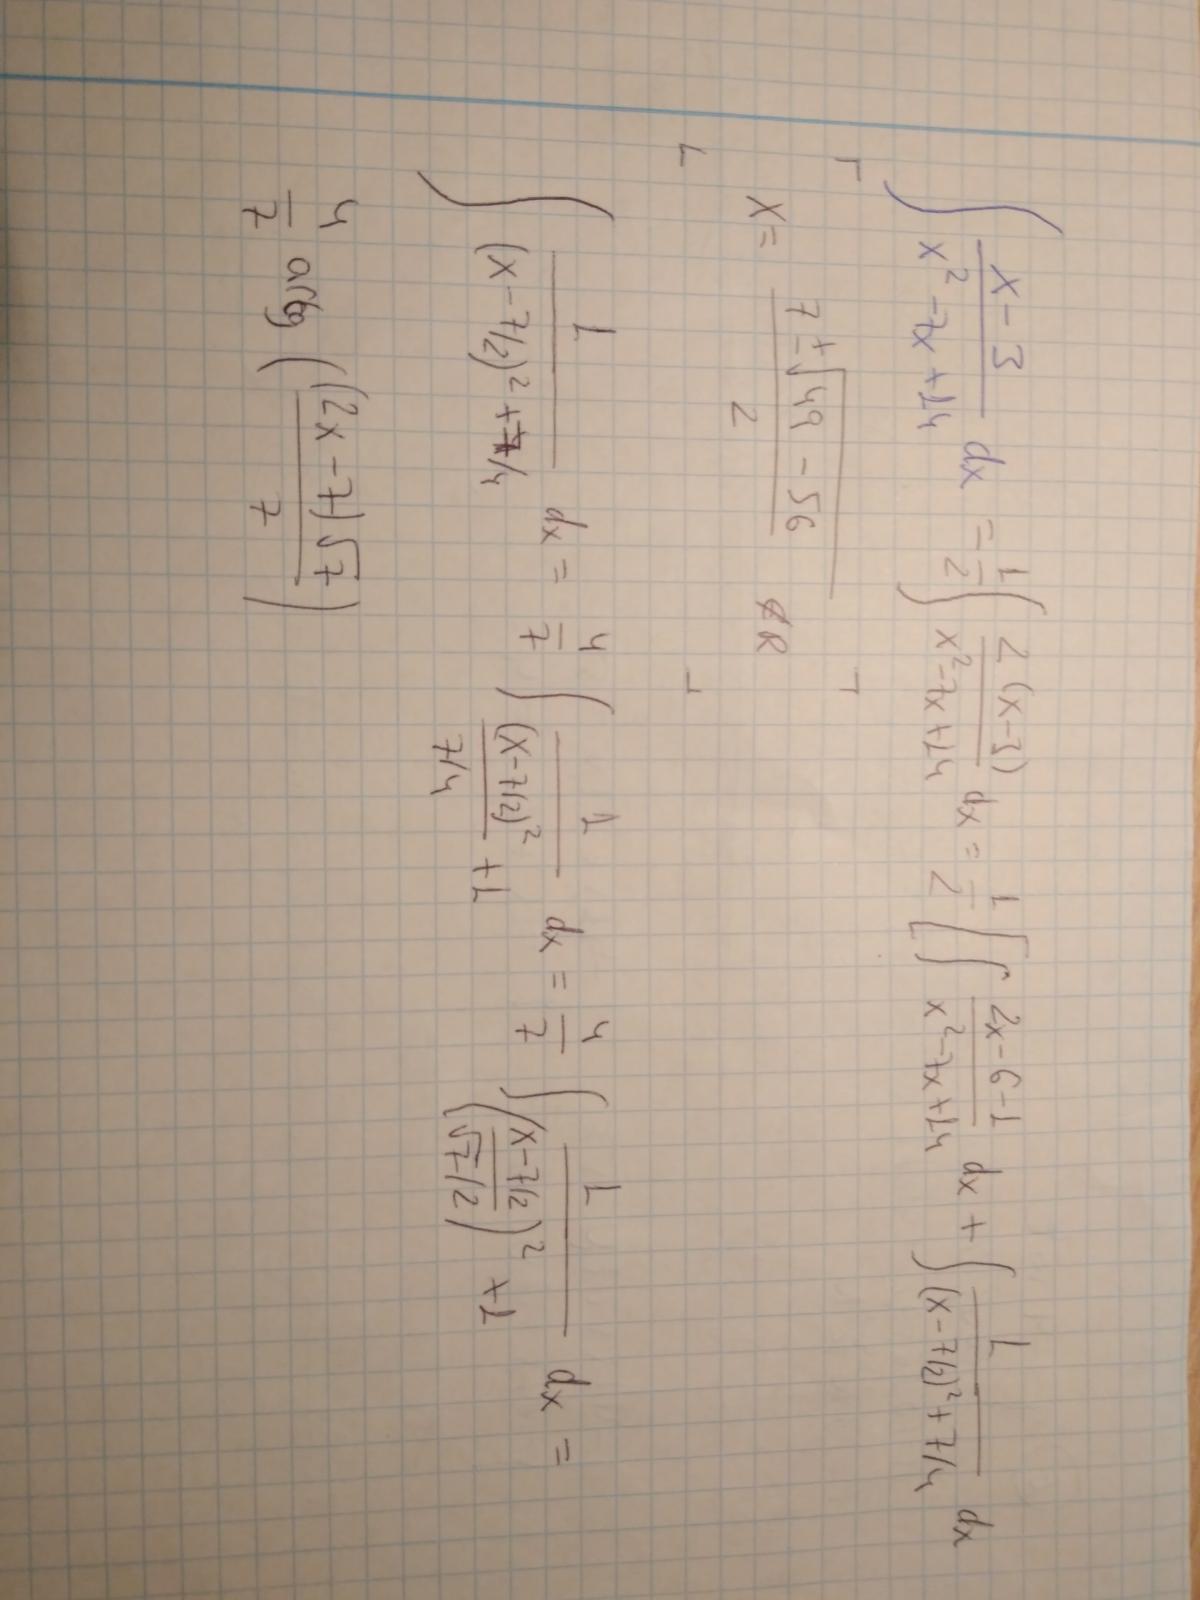 ∫ (x-3)/(x²-7x+14) dx = 1/2 ∫ 2(x-3)/(x²-7x+14) dx = 1/2 [∫ (2x-6-1)/(x²-7x+14) dx + ∫ 1/((x-7/2)²+7/4) dx
x = (7±√(49-56))/2 ∉R
∫ 1/((x-7/2)²+7/4) dx = 4/7 ∫ 1/((x-7/2)²/(7/4) +1) dx = 4/7 ∫ 1/(((x-7/2)/(√7/2))² +1) dx =
4/7 arctg ((2x-7)√7/7)